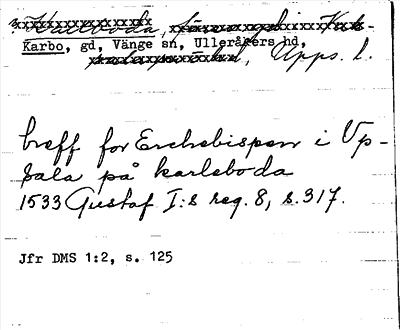 Karbo, gd, Vänge sn, Ulleråkers hd,
Upps. l.
breff for Erchebispen i Vp-
sala på karleboda
1533 Gustaf I:s reg. 8, s. 317.
Jfr DMS 1:2, s. 125